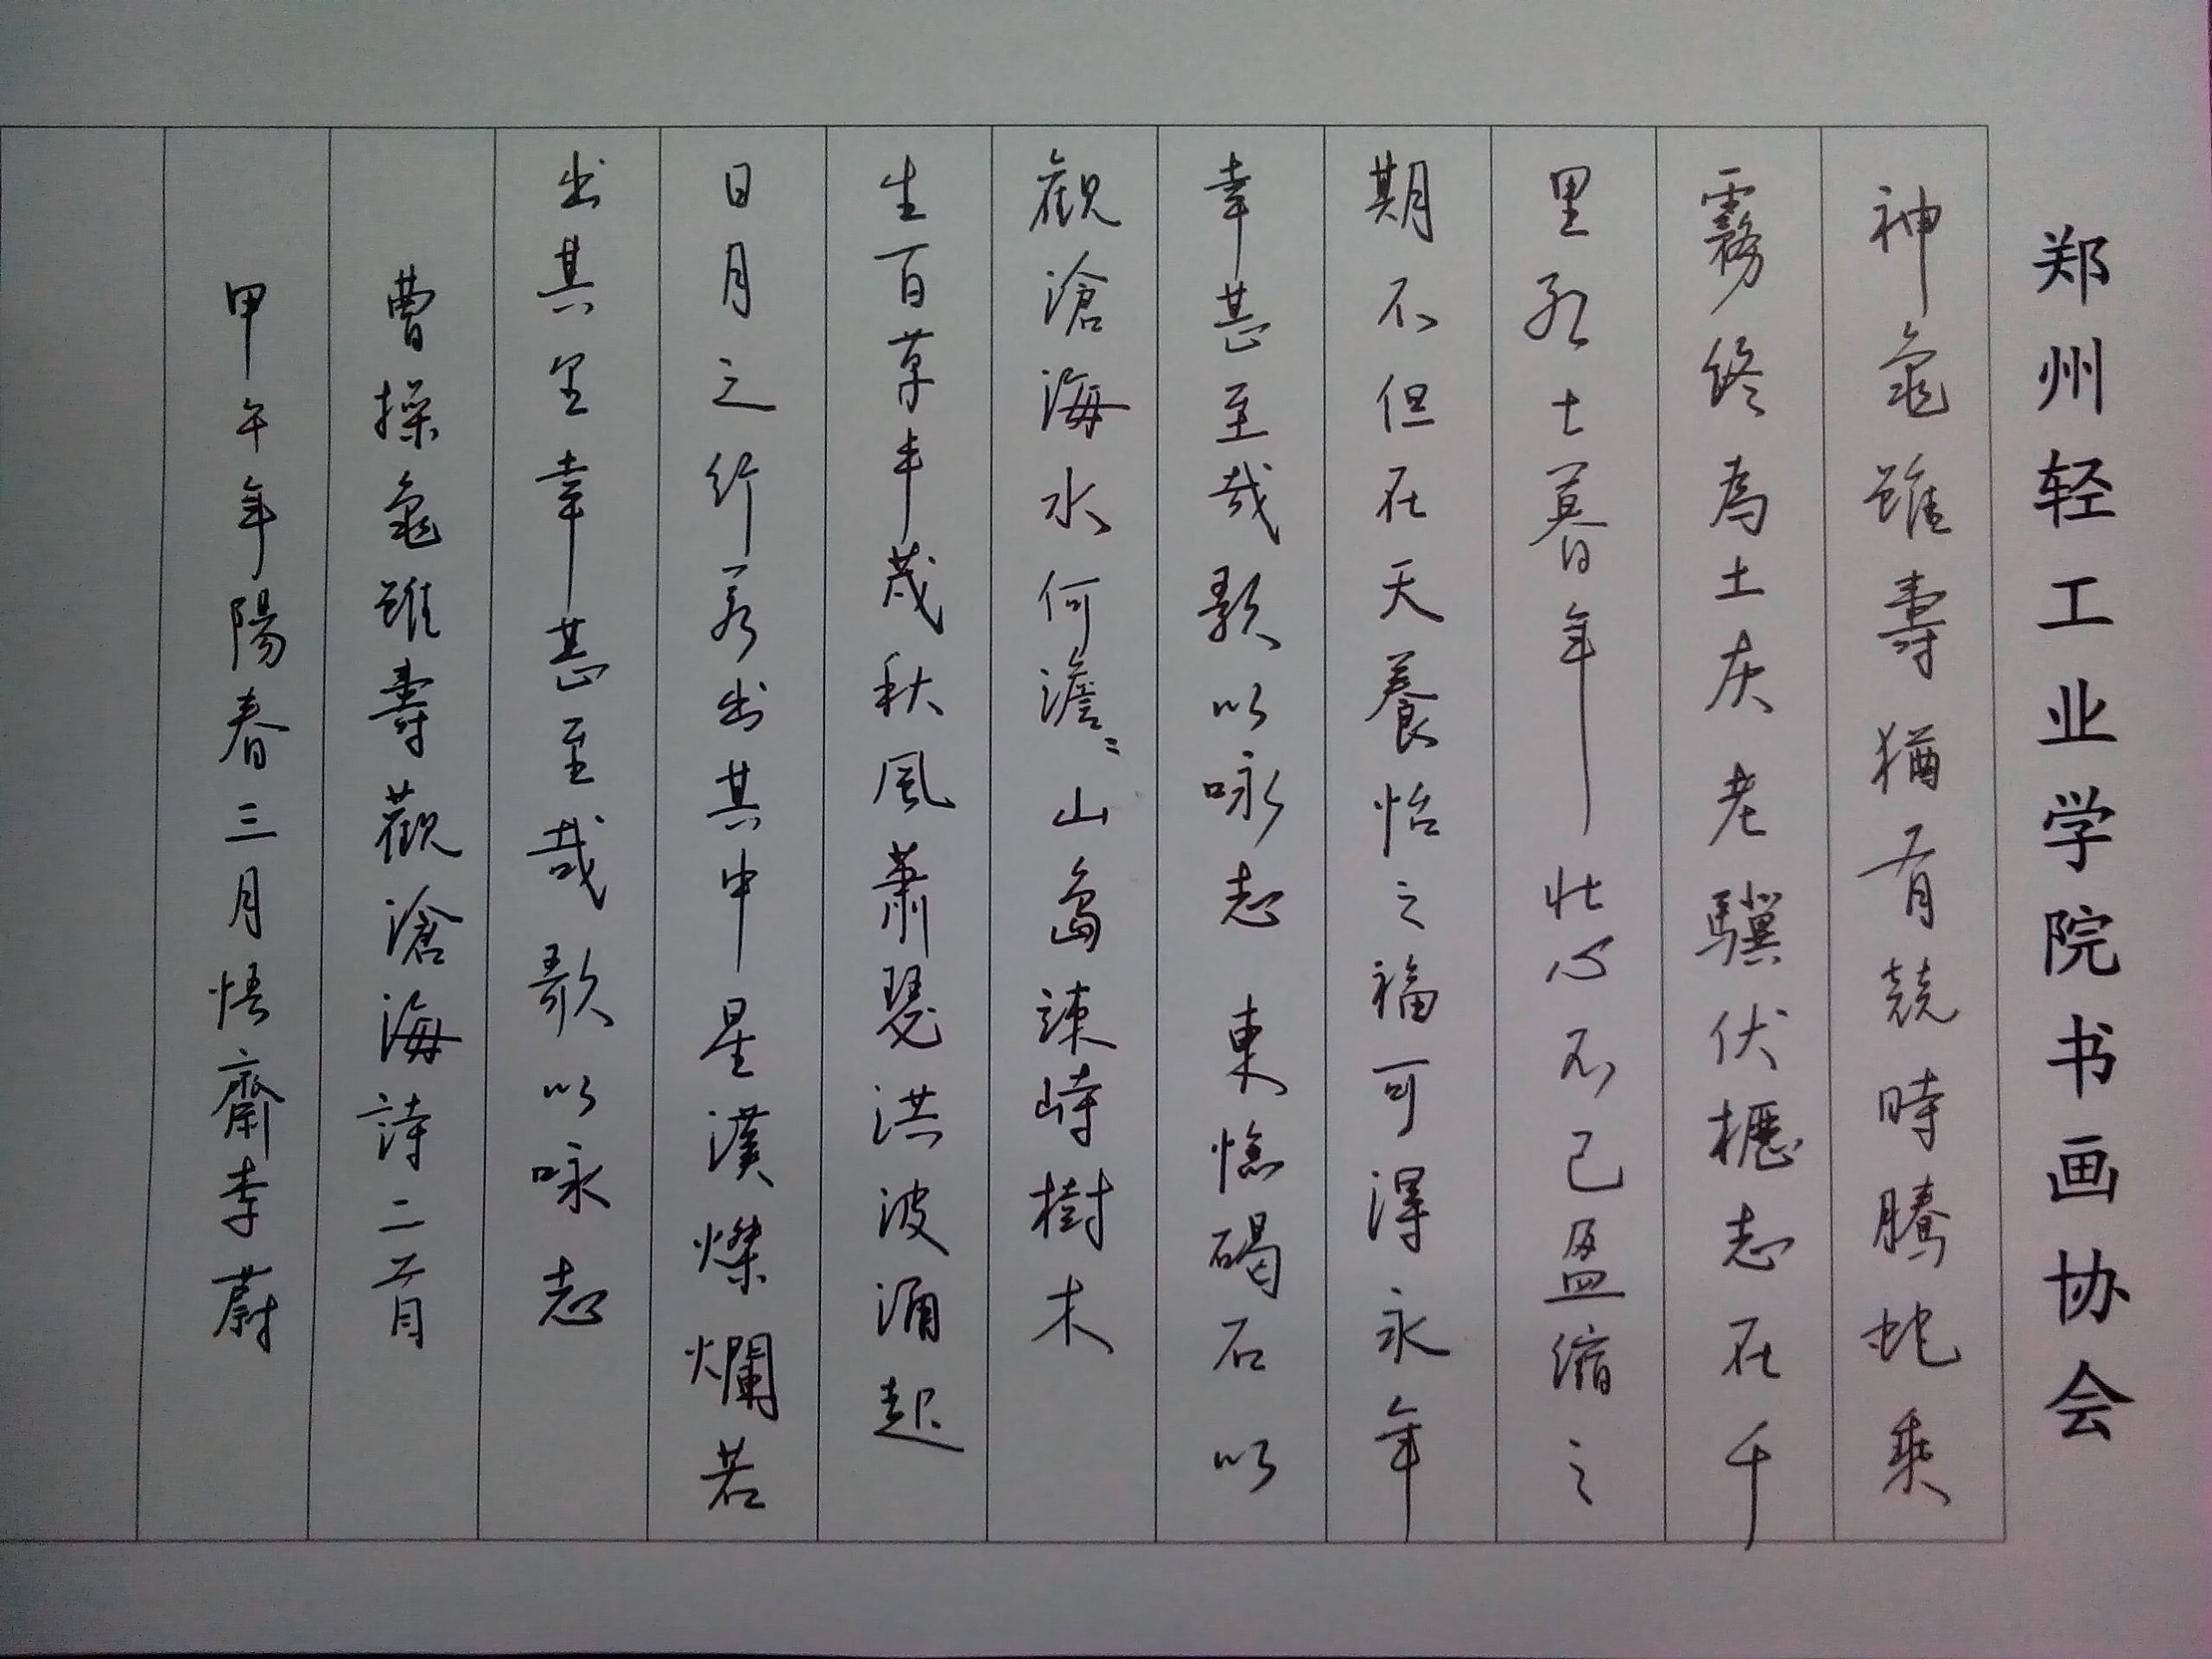 郑州轻工业学院书画协会
神龜雖壽猶有競時騰蛇乘
霧終為土灰老驥伏櫪志在千
里烈士暮年壯心不已盈縮之
期不但在天養怡之福可得永年
幸甚至哉歌以咏志 東臨碣石以
觀滄海水何澹〻山島竦峙樹木
生百草丰茂秋風蕭瑟洪波涌起
日月之行若出其中星漢燦爛若
出其里幸甚至哉歌以咏志
曹操龜雖壽觀滄海詩二首
甲午年陽春三月悟齋李蔚